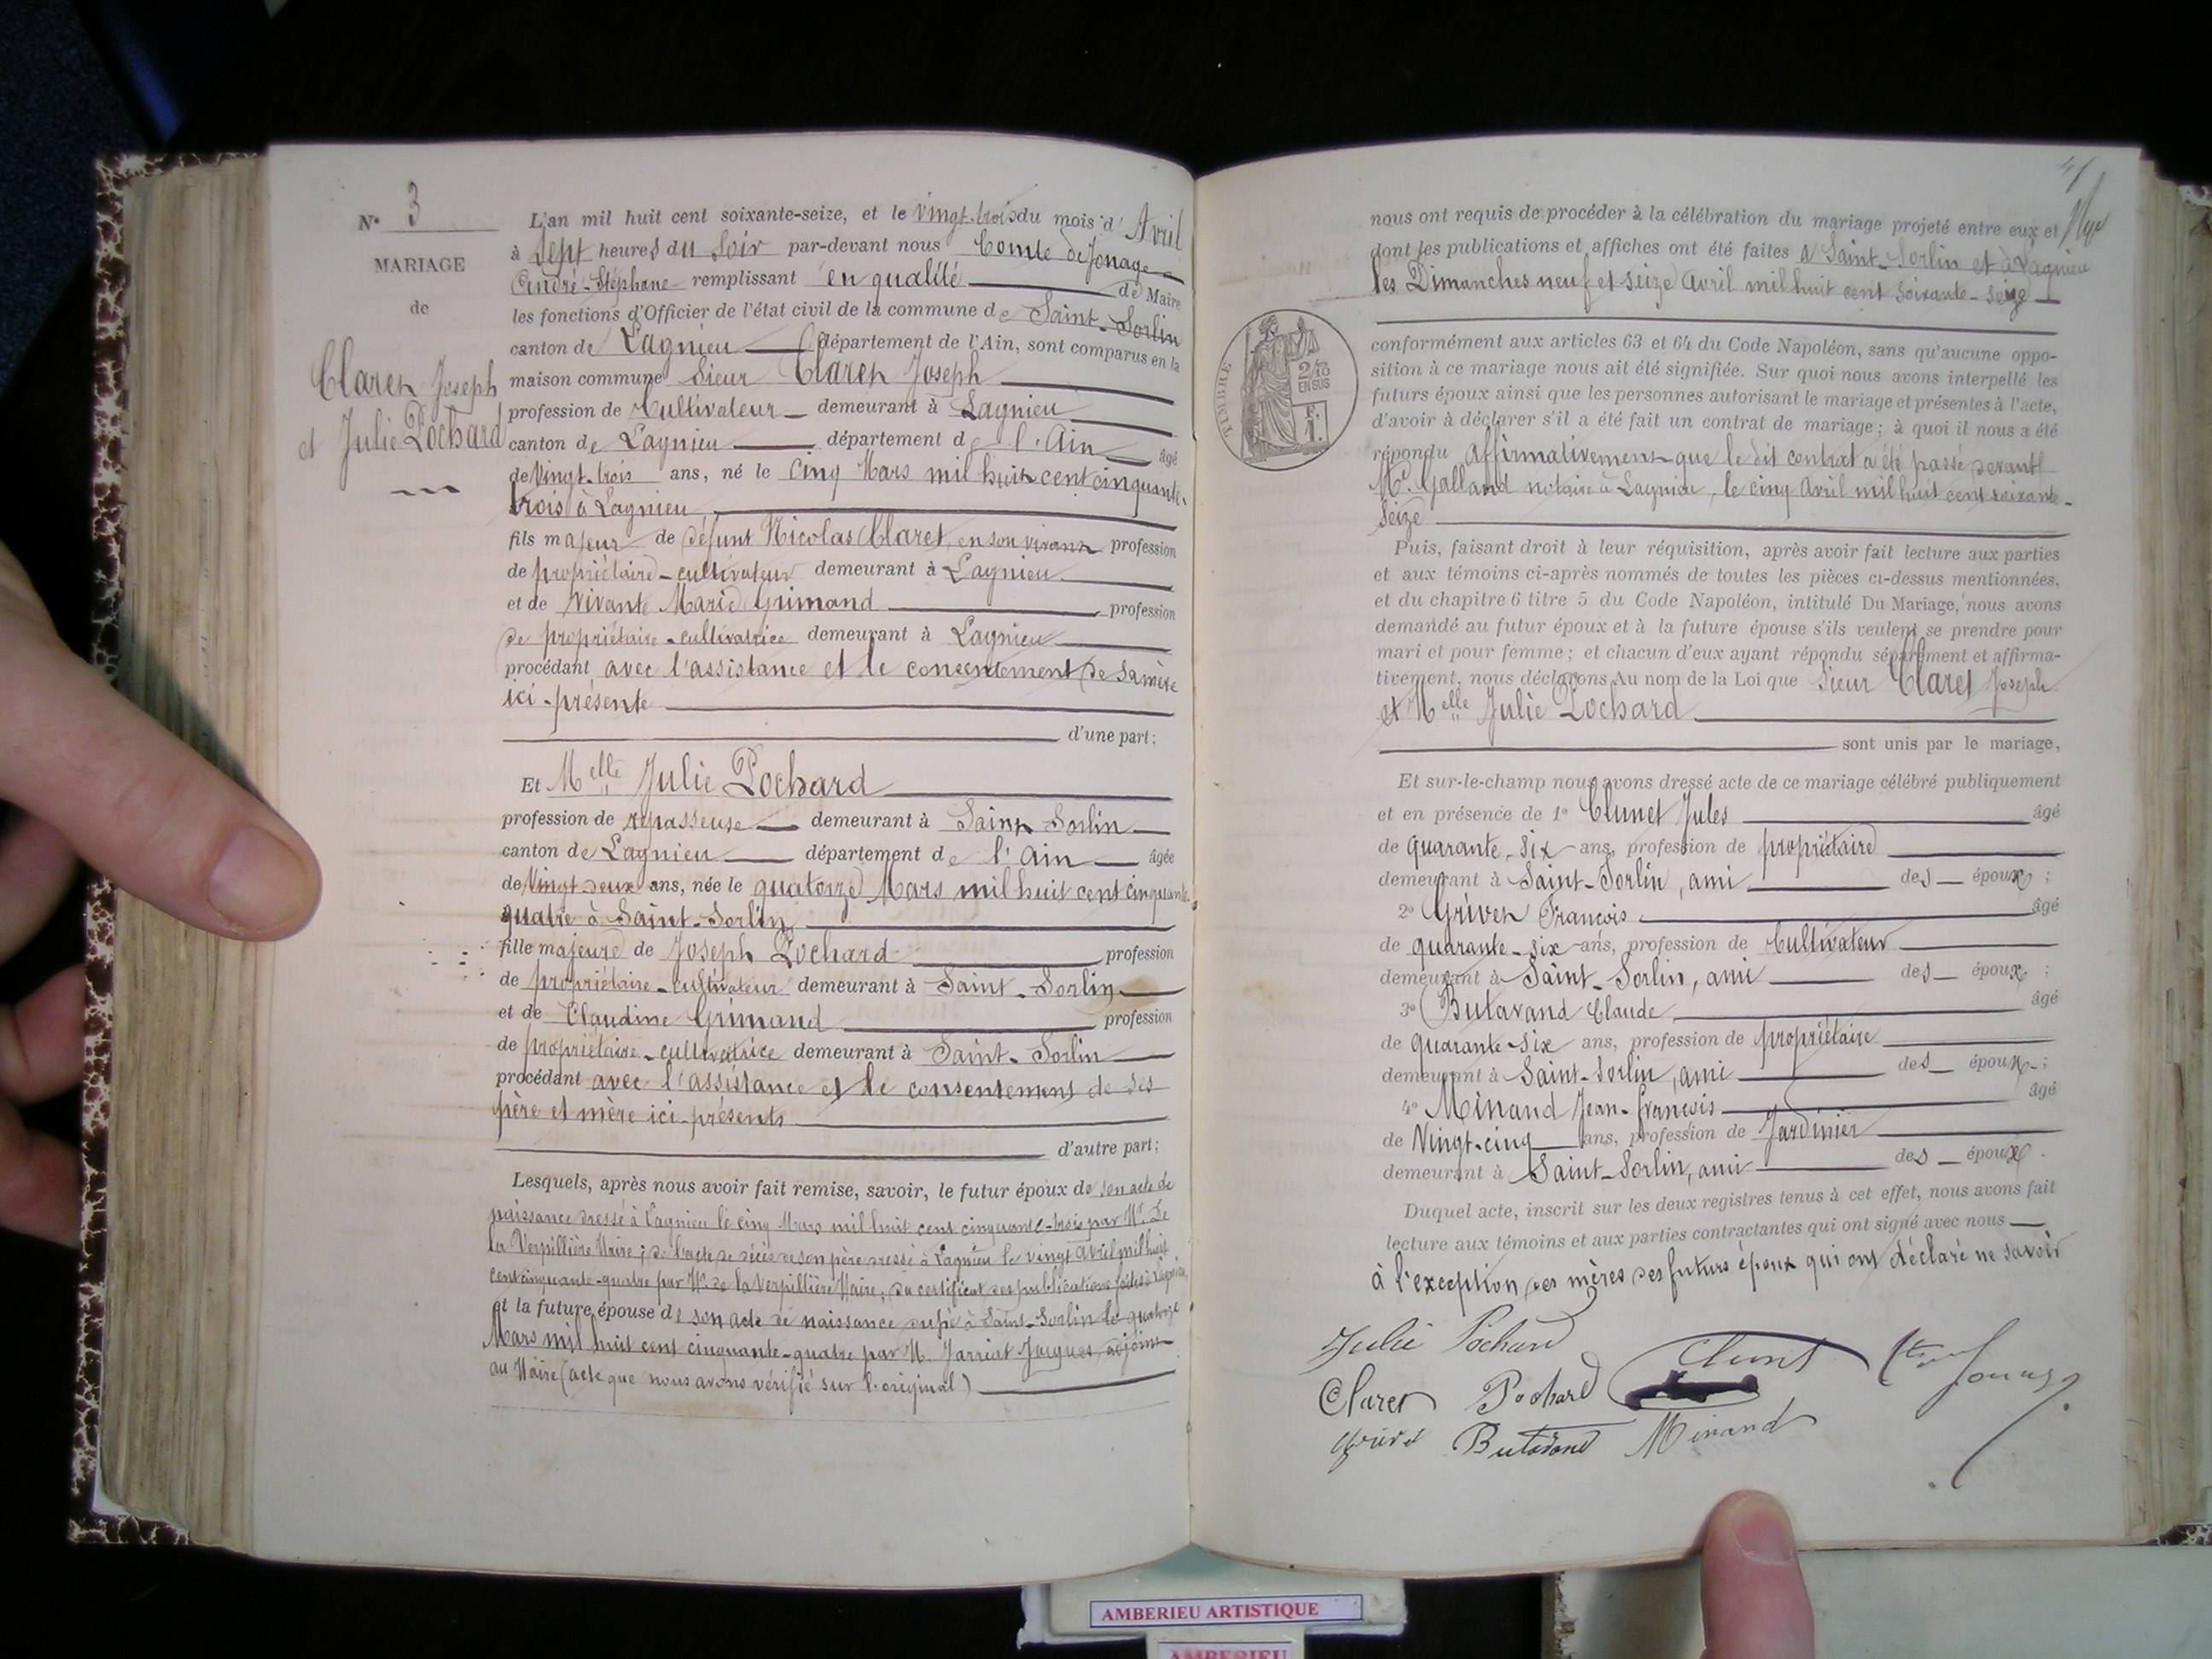 N° 3
MARIAGE
de
Claret Joseph
et Julie Pochard
L'an mil huit cent soixante-seize, et le vingt-trois du mois d' Avril
à Sept heures du Soir par-devant nous Comte de Jonage
André-Stéphane remplissant en qualité de Maire
les fonctions d'Officier de l'état civil de la commune de Saint-Sorlin
canton de Lagnieu département de l'Ain, sont comparus en la
maison commune Sieur Claret Joseph
profession de Cultivateur demeurant à Lagnieu
canton de Lagnieu département de l'Ain âgé
de Vingt-trois ans, né le cinq Mars mil huit cent cinquante-
trois à Lagnieu
fils majeur de défunt Nicolas Claret, en son vivant profession
de propriétaire-cultivateur demeurant à Lagnieu
et de vivante Marie Grimand profession
de propriétaire-cultivatrice demeurant à Lagnieu
procédant avec l'assistance et le consentement de sa mère
ici-présente
d'une part;
Et Melle Julie Pochard
profession de repasseuse demeurant à Saint Sorlin
canton de Lagnieu département de l'Ain âgée
de Vingt-deux ans, née le quatorze Mars mil huit cent cinquante-
quatre à Saint-Sorlin
fille majeure de Joseph Pochard profession
de propriétaire-cultivateur demeurant à Saint-Sorlin
et de Claudine Grimand profession
de propriétaire-cultivatrice demeurant à Saint-Sorlin
procédant avec l'assistance et le consentement de ses
père et mère ici-présents
d'autre part;
Lesquels, après nous avoir fait remise, savoir, le futur époux de son acte de
naissance dressé à Lagnieu le cinq Mars mil huit cent cinquante-trois par Mr. De
la Verpillière Maire; de l'acte de décès de son père dressé à Lagnieu le vingt avril mil huit
cent cinquante-quatre par Mr. de la Verpillière Maire; du certificat des publications faites à Lagnieu,
et la future épouse de son acte de naissance à Saint-Sorlin le quatorze
Mars mil huit cent cinquante-quatre par M. Jarriat Jacques, adjoint
au Maire (acte que nous avons vérifié sur l'original)
nous ont requis de procéder à la célébration du mariage projeté entre eux et
dont les publications et affiches ont été faites à Saint-Sorlin et à Lagnieu
les Dimanches neuf et seize Avril mil huit cent soixante-seize
TIMBRE
2/10
EN SUS
conformément aux articles 63 et 64 du Code Napoléon, sans qu'aucune oppo-
sition à ce mariage nous ait été signifiée. Sur quoi nous avons interpellé les
futurs époux ainsi que les personnes autorisant le mariage et présentes à l'acte,
d'avoir à déclarer s'il a été fait un contrat de mariage; à quoi il nous a été
répondu affirmativement que le dit contrat a été passé devant
Me. Galland notaire à Lagnieu, le cinq Avril mil huit cent soixante-
seize
Puis, faisant droit à leur réquisition, après avoir fait lecture aux parties
et aux témoins ci-après nommés de toutes les pièces ci-dessus mentionnées,
et du chapitre 6 titre 5 du Code Napoléon, intitulé Du Mariage, nous avons
demandé au futur époux et à la future épouse s'ils veulent se prendre pour
mari et pour femme; et chacun d'eux ayant répondu séparément et affirma-
tivement, nous déclarons Au nom de la Loi que Sieur Claret Joseph
et Melle Julie Pochard
sont unis par le mariage,
Et sur-le-champ nous avons dressé acte de ce mariage célébré publiquement
et en présence de 1° Clunet Jules âgé
de quarante-six ans, profession de propriétaire
demeurant à Saint-Sorlin, ami des époux;
2° Grivet François âgé
de quarante-six ans, profession de Cultivateur
demeurant à Saint-Sorlin, ami des époux;
3° Butavand Claude âgé
de quarante-six ans, profession de propriétaire
demeurant à Saint-Sorlin, ami des époux;
4° Minand Jean-François âgé
de Vingt-cinq ans, profession de Jardinier
demeurant à Saint-Sorlin, ami des époux.
Duquel acte, inscrit sur les deux registres tenus à cet effet, nous avons fait
lecture aux témoins et aux parties contractantes qui ont signé avec nous
à l'exception des mères des futurs époux qui ont déclaré ne savoir
Julie Pochard
Claret Pochard Clunet Jonage
Grivet Butavand Minand
AMBERIEU ARTISTIQUE
AMBERIEU